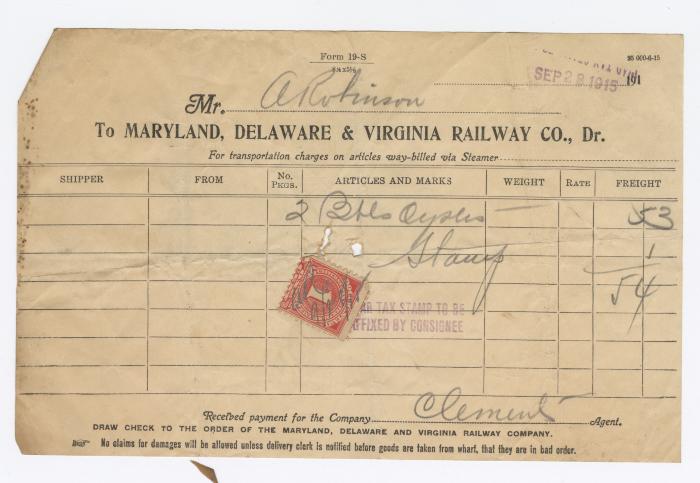 Form 19-S
95 000-6-15
SEP 28 1915 191
Mr. A Robinson
To MARYLAND, DELAWARE & VIRGINIA RAILWAY CO., Dr.
For transportation charges on articles way-billed via Steamer
SHIPPER FROM No. PKGS. ARTICLES AND MARKS WEIGHT RATE FREIGHT
2 Bbls Oysters 53
Stamp 1
54
TAX STAMP TO BE
FFIXED BY CONSIGNEE
Received payment for the Company Clement Agent.
DRAW CHECK TO THE ORDER OF THE MARYLAND, DELAWARE AND VIRGINIA RAILWAY COMPANY.
No claims for damages will be allowed unless delivery clerk is notified before goods are taken from wharf, that they are in bad order.